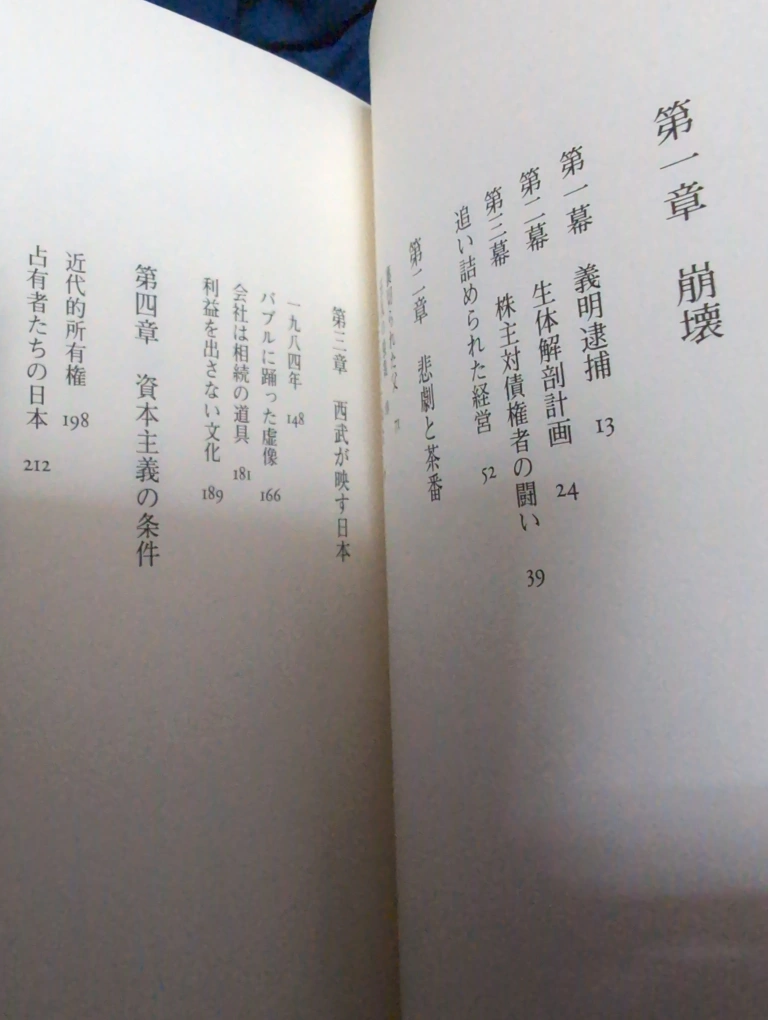 第一章 崩壊
第一幕 義明逮捕 13
第二幕 生体解剖計画 24
第三幕 株主対債権者の闘い 39
追い詰められた経営 52
第二章 悲劇と茶番
裏切られた父 71
第三章 西武が映す日本
一九八四年 148
バブルに踊った虚像 166
会社は相続の道具 181
利益を出さない文化 189
第四章 資本主義の条件
近代的所有権 198
占有者たちの日本 212